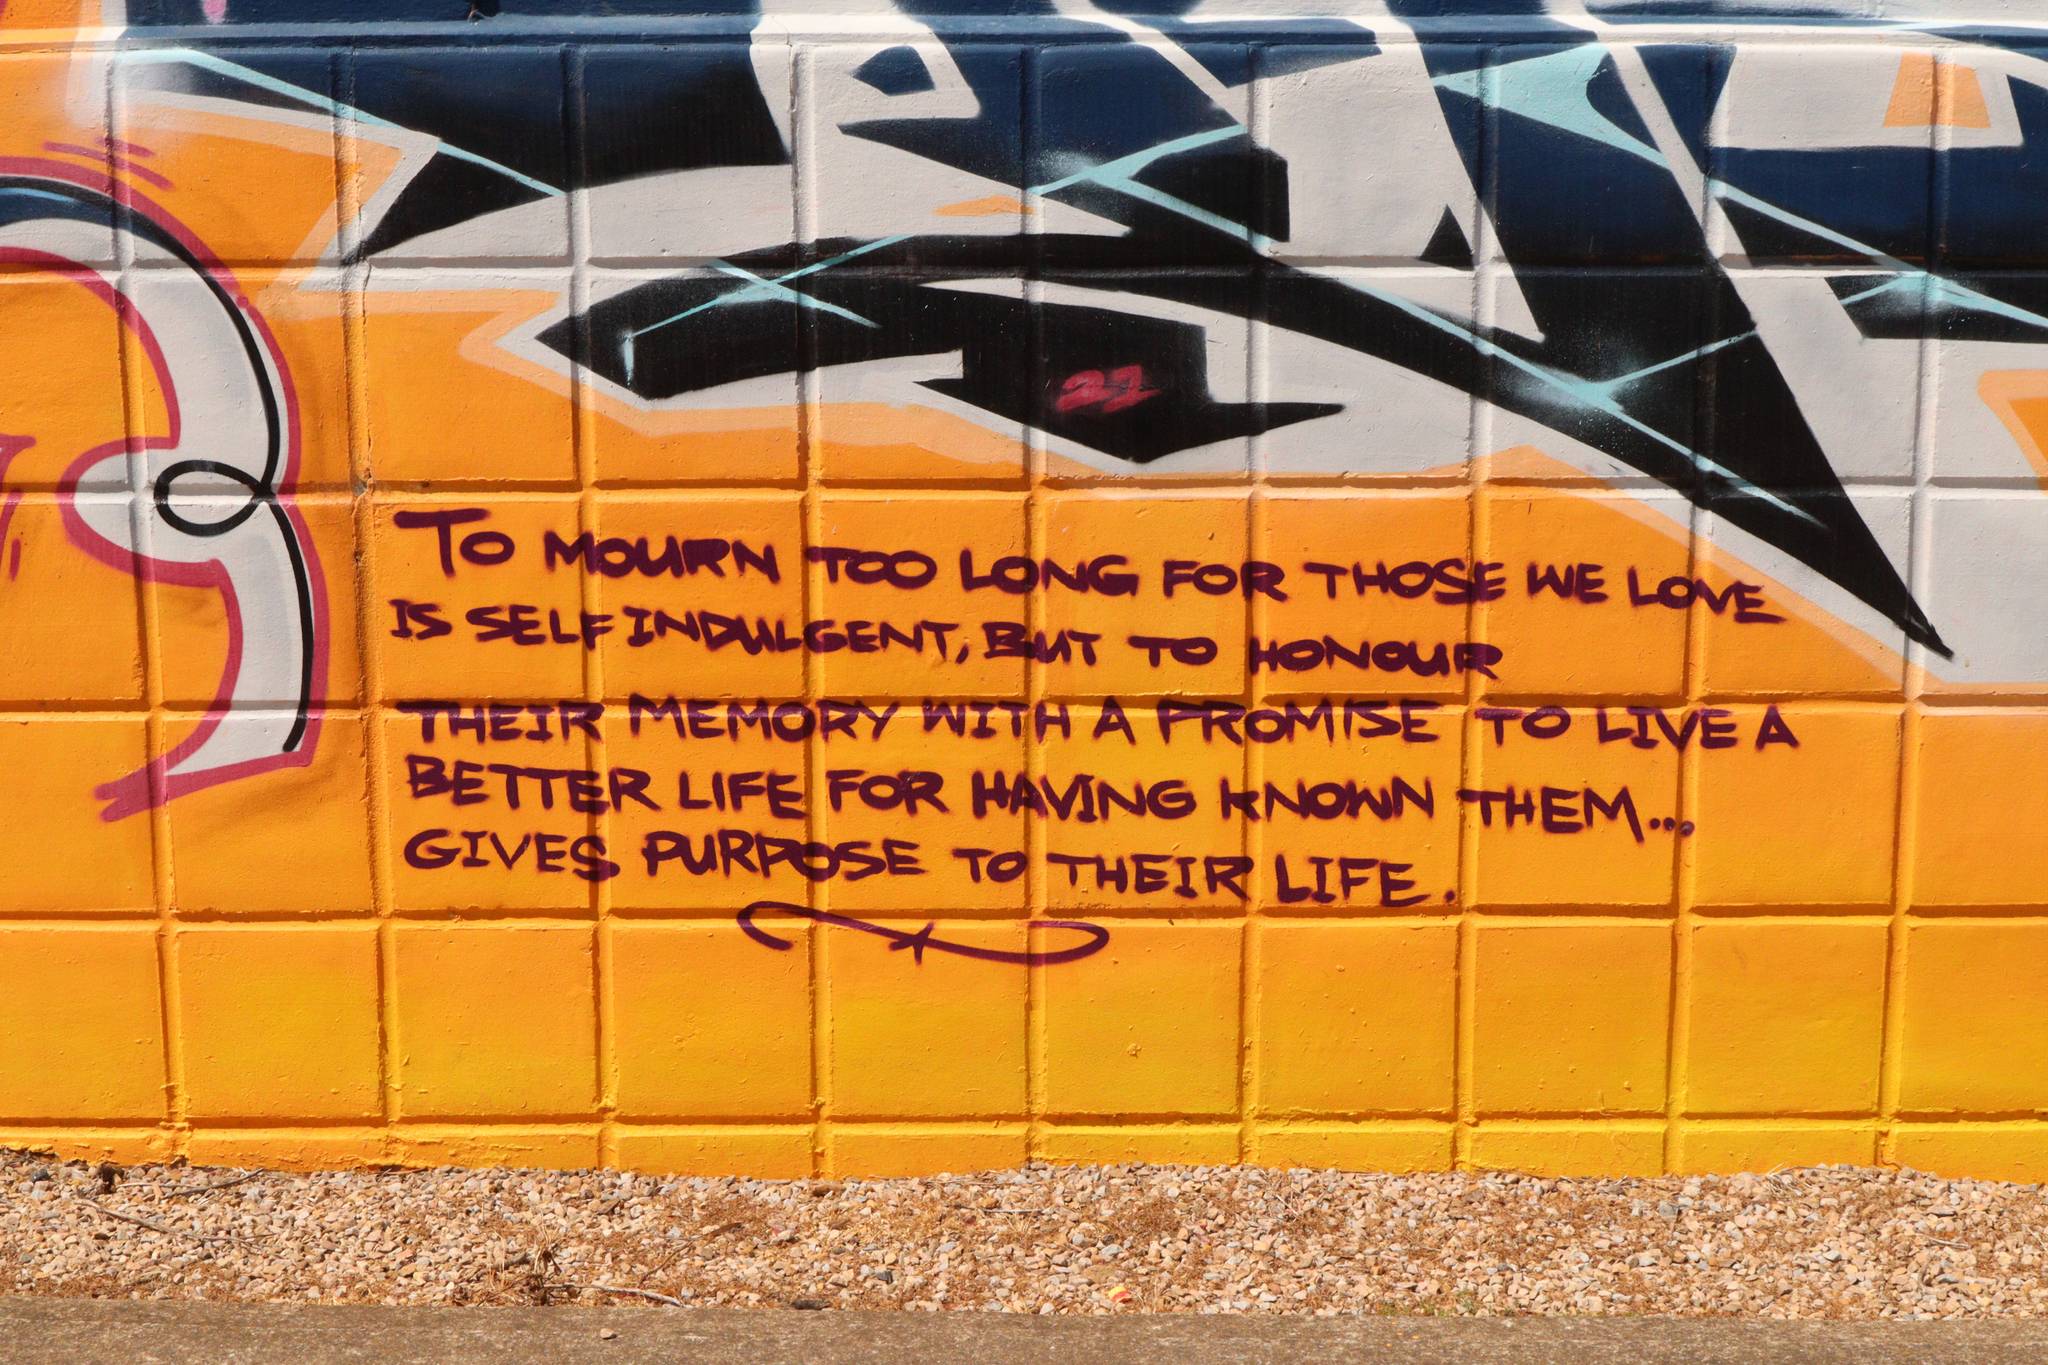 21
TO MOURN TOO LONG FOR THOSE WE LOVE
IS SELF INDULGENT, BUT TO HONOUR
THEIR MEMORY WITH A PROMISE TO LIVE A
BETTER LIFE FOR HAVING KNOWN THEM...
GIVES PURPOSE TO THEIR LIFE.